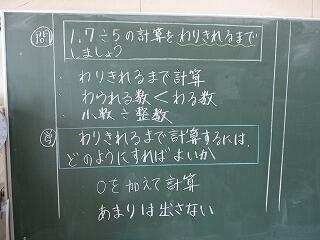 問
1.7÷5の計算をわりきれるまで
しましょう
・わりきれるまで計算
・わられる数<わる数
・小数÷整数
わりきれるまで計算するには、
どのようにすればよいか
0を加えて計算
あまりは出さない